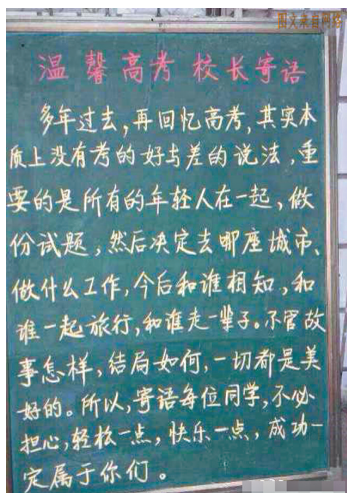 图文来自网络
温馨高考 校长寄语
多年过去,再回忆高考,其实本
质上没有考的好与差的说法,重
要的是所有的年轻人在一起,做
份试题,然后决定去哪座城市、
做什么工作,今后和谁相知,和
谁一起旅行,和谁走一辈子。不管故
事怎样,结局如何,一切都是美
好的。所以,寄语每位同学,不必
担心,轻松一点,快乐一点,成功一
定属于你们。